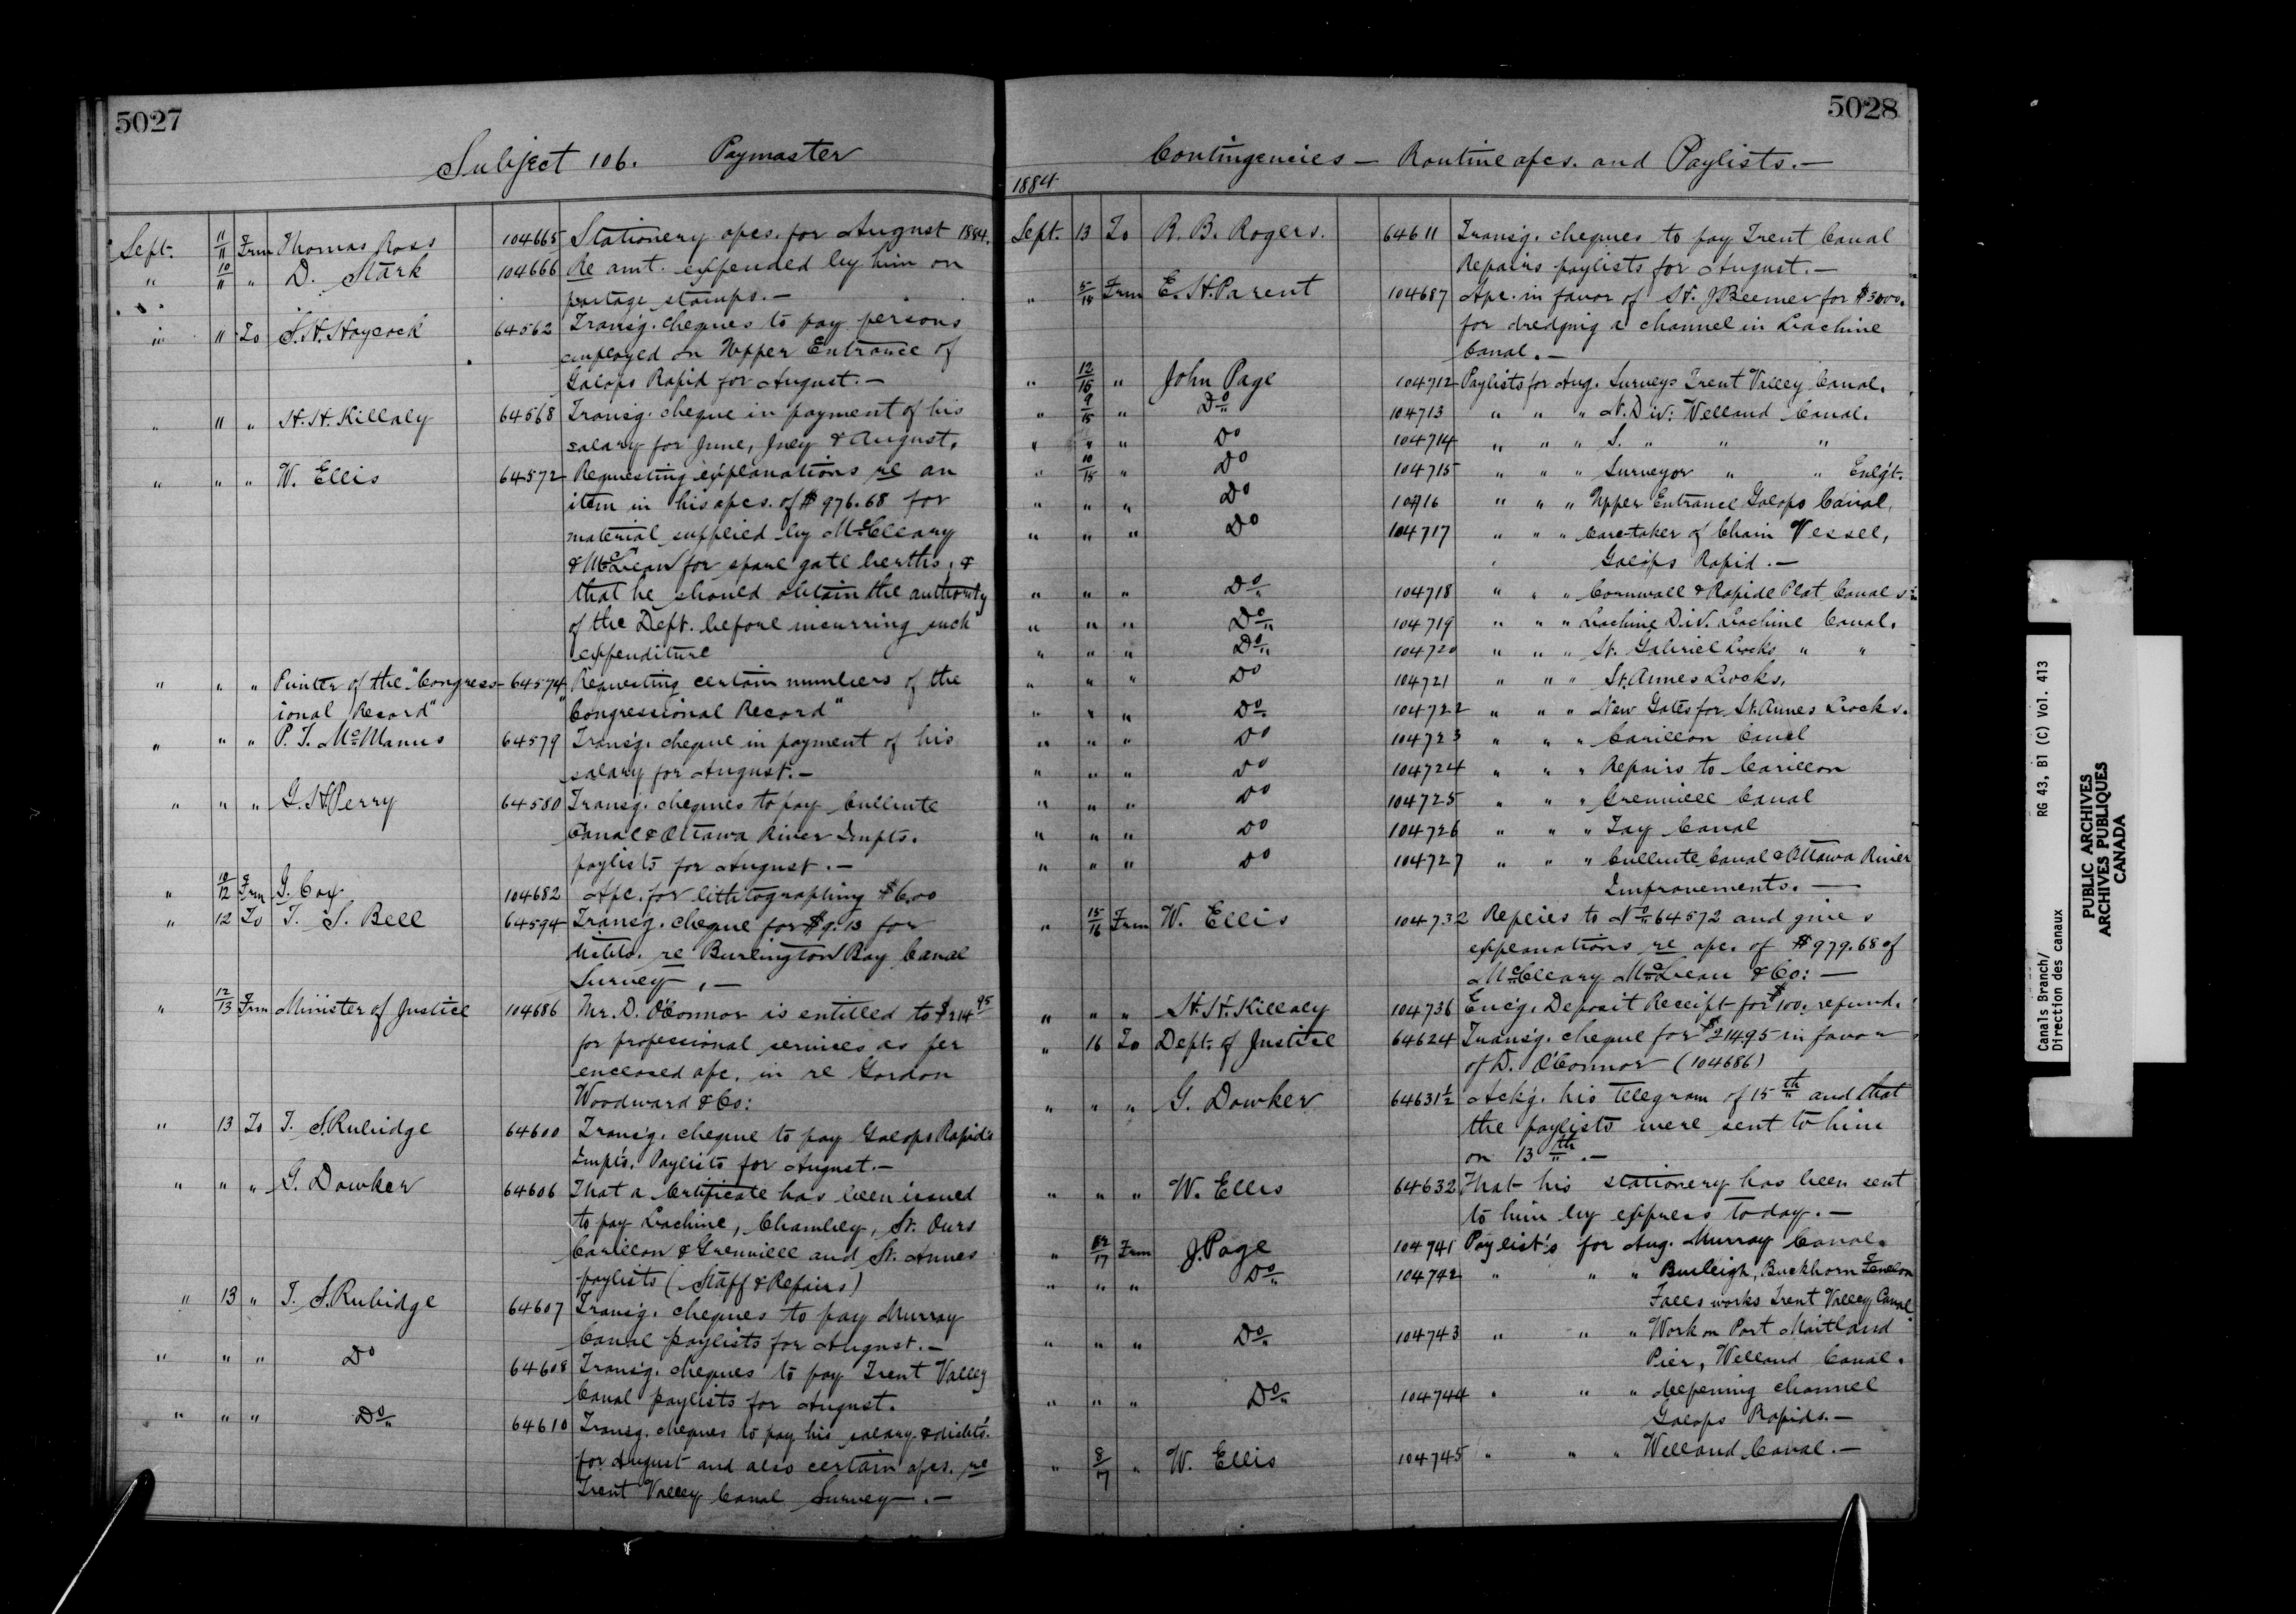 5027
Subject 106. Paymaster
Sept. 11/11 Frm Thomas Ross 104665 Stationery apcs. for August 1884.
" 10/11 " D. Stark 104666 Re amt. expended by him on
postage stamps.—
" 11 To S. H. Haycock 64562 Transg. cheques to pay persons
employed on Upper Entrance of
Galops Rapid for August.—
" 11 " H. H. Killaly 64568 Transg. cheque in payment of his
salary for June, July & August.
" " " W. Ellis 64572 Requesting explanations re an
item in his apcs. of $976.68 for
material supplied by McCleary
& McLean for spare gate berths, &
that he should obtain the authority
of the Dept. before incurring such
expenditure
" " " Printer of the "Congress- 64574 Requesting certain numbers of the
ional Record" "Congressional Record"
" " " P. T. McManus 64579 Transg. cheque in payment of his
salary for August.—
" " " G. H. Perry 64580 Transg. cheques to pay Culbute
Canal & Ottawa River Impts.
paylists for August.—
" 10/12 Frm G. Cox 104682 Apc. for lithographing $6.00
" 12 To T. S. Bell 64594 Transg. cheque for $9.13 for
re Burlington Bay Canal
Survey.—
" 12/13 Frm Minister of Justice 104686 Mr. D. O'Connor is entitled to $214 95
for professional services as per
enclosed apc. in re Gordon
Woodward & Co:
" 13 To T. S. Rubidge 64600 Transg. cheque to pay Galops Rapids
Impts. Paylists for August.—
" " " G. Dowker 64606 That a Certificate has been issued
to pay Lachine, Chambly, St. Ours
Carillon & Grenville and St. Annes
paylists (Staff & Repairs)
" 13 " T. S. Rubidge 64607 Transg. cheques to pay Murray
Canal paylists for August.—
" " " Do 64608 Transg. cheques to pay Trent Valley
Canal paylists for August.
" " " Do 64610 Transg. cheques to pay his salary & disbts.
for August and also certain apcs. re
Trent Valley Canal Survey.—
5028
Contingencies — Routine apcs. and Paylists.—
1884
Sept. 13 To R. B. Rogers. 64611 Transg. cheques to pay Trent Canal
Repairs paylists for August.—
" 5/15 Frm E. H. Parent 104687 Apc. in favor of H. J Beemer for $3000.
for dredging a channel in Lachine
Canal.—
" 12/15 " John Page 104712 Paylists for Aug. Surveys Trent Valley Canal.
" 9/15 " Do 104713 " " " N. Div: Welland Canal.
" " " Do 104714 " " " S. " " "
" 10/15 " Do 104715 " " " Surveyor " " Enlgt.
" " " Do 104716 " " " Upper Entrance Galops Canal.
" " " Do 104717 " " " Care-taker of Chain Vessel,
Galops Rapid.—
" " " Do 104718 " " " Cornwall & Rapide Plat Canals:
" " " Do 104719 " " " Lachine Div. Lachine Canal.
" " " Do 104720 " " " St. Gabriel Locks " "
" " " Do 104721 " " " St. Annes Locks,
" " " Do 104722 " " " New Gates for St. Annes Locks.
" " " Do 104723 " " " Carillon Canal
" " " Do 104724 " " " Repairs to Carillon
" " " Do 104725 " " " Grenville Canal
" " " Do 104726 " " " Tay Canal
" " " Do 104727 " " " Culbute Canal & Ottawa River
Improvements.—
" 15/16 Frm W. Ellis 104732 Replies to No 64572 and gives
explanations re apc. of $979.68 of
McCleary McLean & Co:—
" " " H. H. Killaly 104736 Encg. Deposit Receipt for $100. refund.
" 16 To Dept. of Justice 64624 Transg. cheque for $214 95 in favor
of D. O'Connor (104686)
" " " G. Dowker 64631½ Ackg. his telegram of 15th and that
the paylists were sent to him
on 13th.—
" " " W. Ellis 64632 That his stationery has been sent
to him by express today.—
" 12/17 Frm J. Page 104741 Paylist's for Aug. Murray Canal.
" " " Do 104742 " " " Burleigh, Buckhorn Fenelon
Falls works Trent Valley Canal
" " " Do 104743 " " " Work on Port Maitland
Pier, Welland Canal.
" " " Do 104744 " " " deepening channel
Galops Rapids.—
" 8/17 " W. Ellis 104745 " " " Welland Canal.—
Canals Branch/ RG 43, B1 (C) Vol. 413
Direction des canaux
PUBLIC ARCHIVES
ARCHIVES PUBLIQUES
CANADA